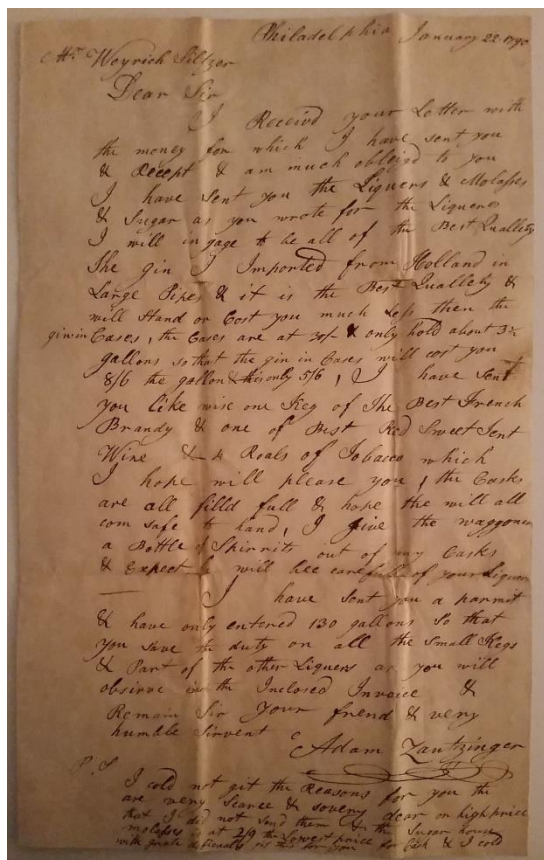 Philadelphia January 22 1790
Mr. Weyrich Siltzer
Dear Sir
I Receivd your Letter with
the money for which I have sent you
& Recept & am much oblejd to you
I have sent you the Liquers & Molasses
& Sugar as you wrote for the Liquers
I will ingage to be all of the Best Quallety
The gin I Imported from Holland in
Large Pipes & it is the Best Quallety &
will Stand or Cost you much Less then the
gin in Cases, the Cases are at 30/- & only hold about 3½
gallons so that the gin in Cases will cost you
8/6 the gallon & this only 5/6, I have sent
you like wise one Keg of The Best French
Brandy & one of Best Red Sweet Tent
Wine & 4 Roals of Tobacco which
I hope will please you, the Casks
are all filld full & hope the will all
com safe to hand, I give the waggoner
a Bottle of Spirrits out of my Casks
& Expect he will bee carefull of your Liquer
I have sent you a parmit
& have only entered 130 gallons so that
you save the duty on all the small Kegs
& Part of the other Liquers as you will
obsirve in the Inclosed Invoice &
Remain Sir your frend & very
humble Sirvent
Adam Zantzinger
P.S
I cold not git the Reasons for you the
are very Scarce & so very dear or high price
that I did not send them & the Sugar house
molasses is at 2/9 the Lowest price for Cash & I cold
with grate for you